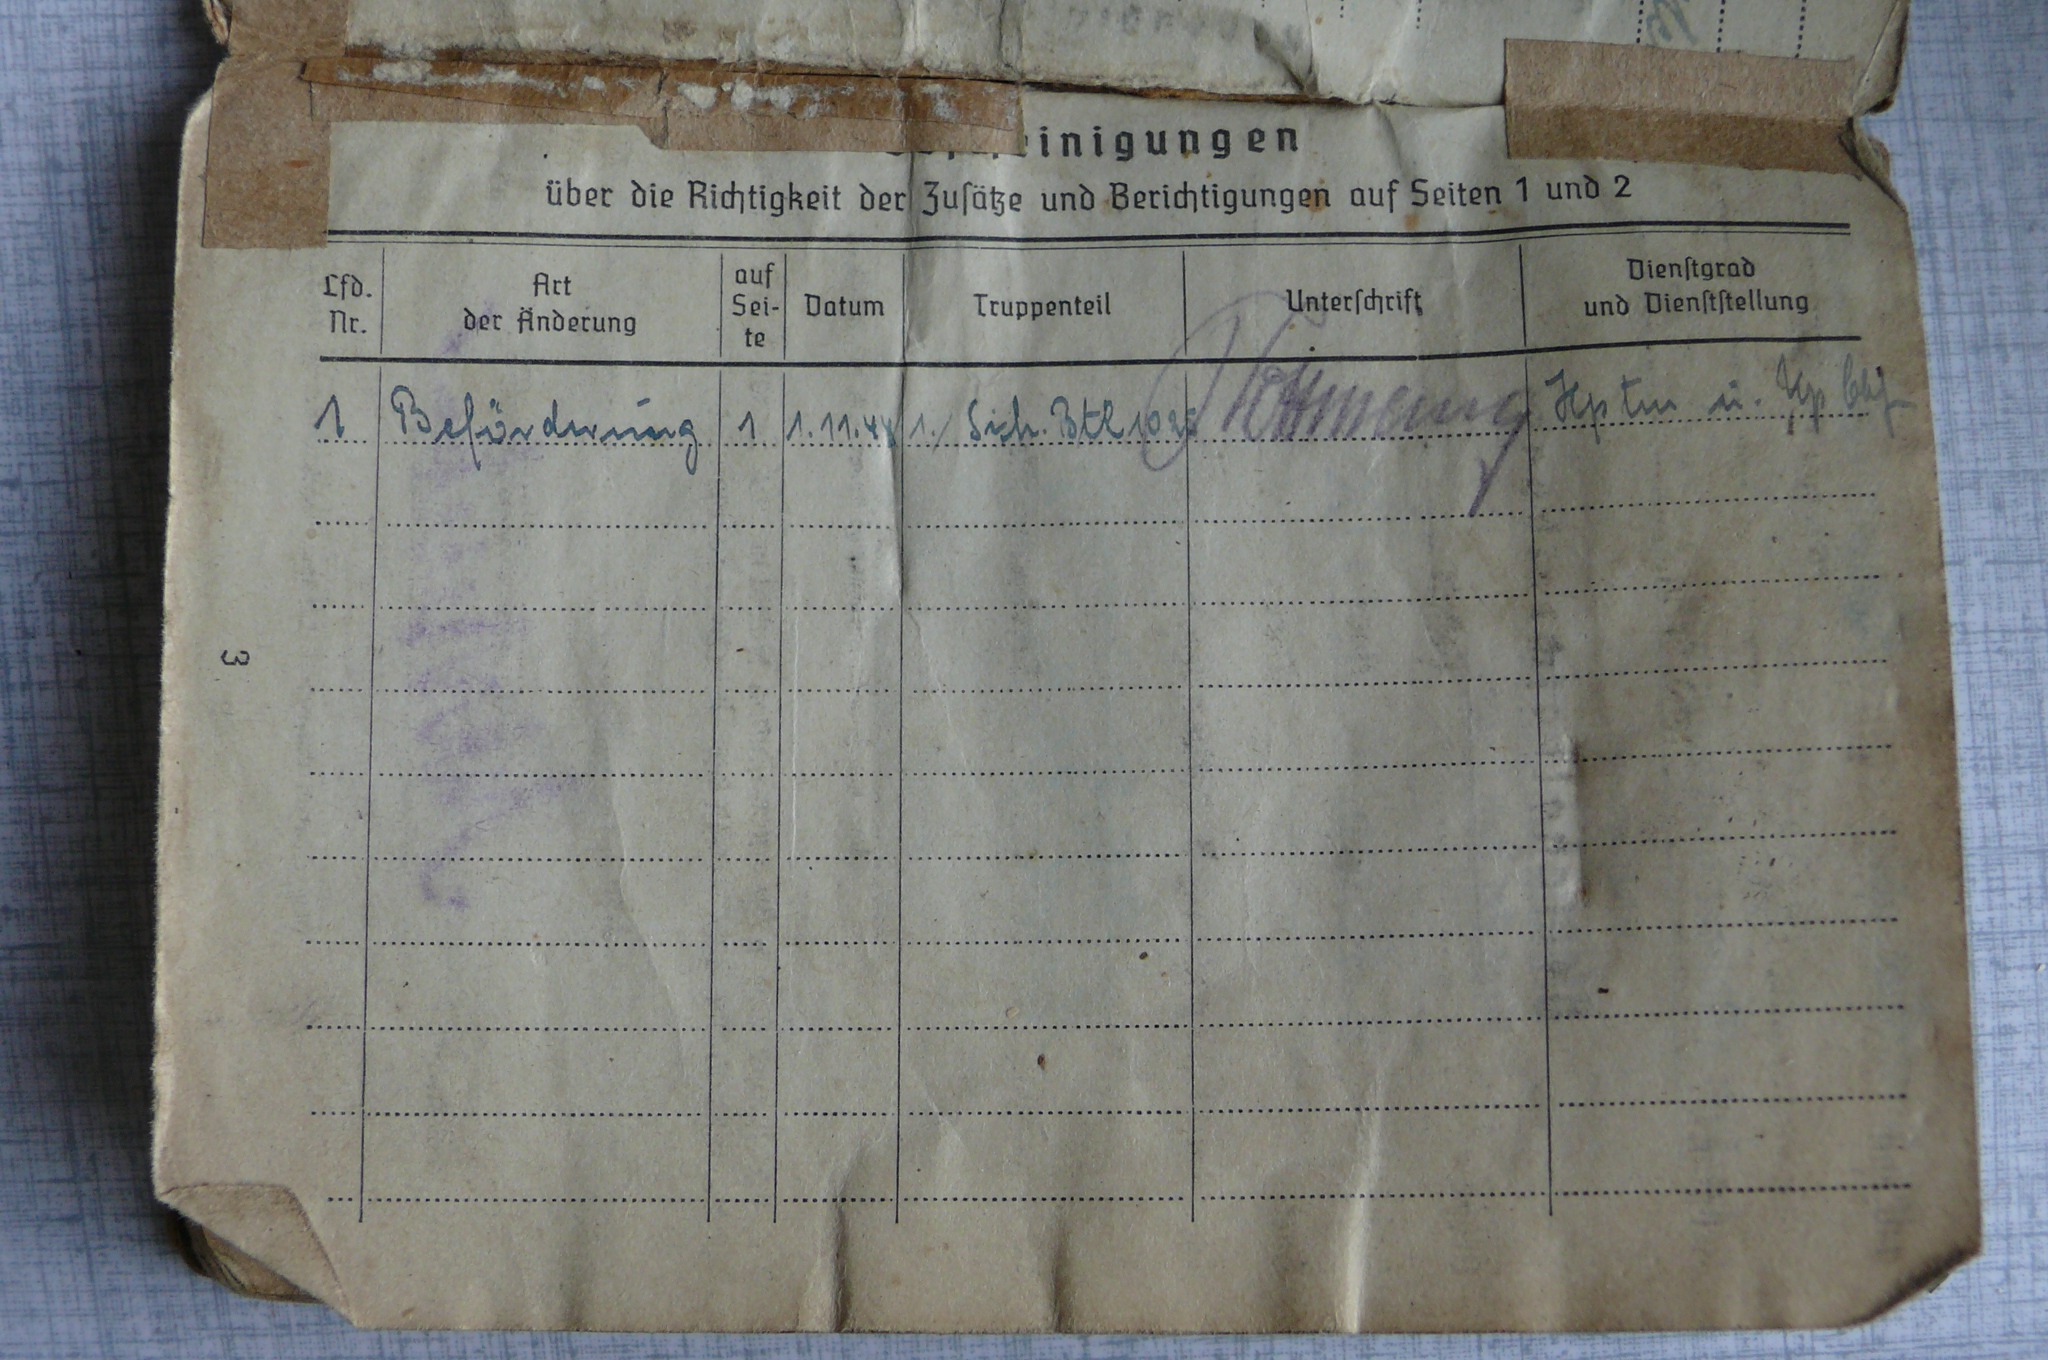 einigungen
über die Richtigkeit der Zusätze und Berichtigungen auf Seiten 1 und 2
Lfd. Nr.
Art der Änderung
auf Sei- te
Datum
Truppenteil
Unterschrift
Dienstgrad und Dienststellung
1 Beförderung 1 1.11.44 1./ Sich. Btl 1025 Hptm u. Kp Chef
3